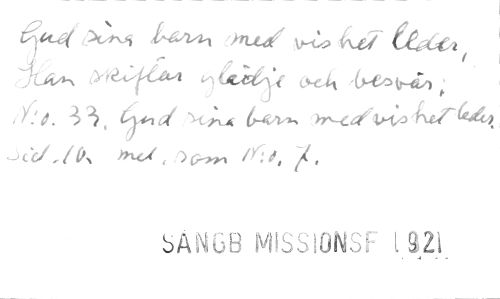 Gud sina barn med vishet leder,
Han skiftar glädje och besvär;
N:o. 33. Gud sina barn med vishet leder.
Sid. 10. mel. som N:o. 7.
SÅNGB MISSIONSF 1921